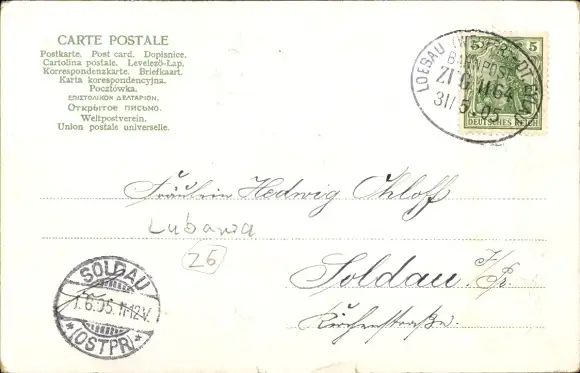 CARTE POSTALE
Postkarte. Post card. Dopisnice.
Cartolina postale. Levelező-Lap.
Korrespondenzkarte. Briefkaart.
Karta korespondencyjna.
Pocztówka.
ΕΠΙΣΤΟΛΙΚΟΝ ΔΕΛΤΑΡΙΟΝ.
Открытое письмо.
Weltpostverein.
Union postale universelle.
5 5
DEUTSCHES REICH
LOEBAU (WESTPR.)
BAHNPOST
ZUG 1164
31/5 05
Fräulein Hedwig
Lubawa
26
Soldau
Kirchenstraße.
SOLDAU
1.6.05. 11-12V.
*(OSTPR)*